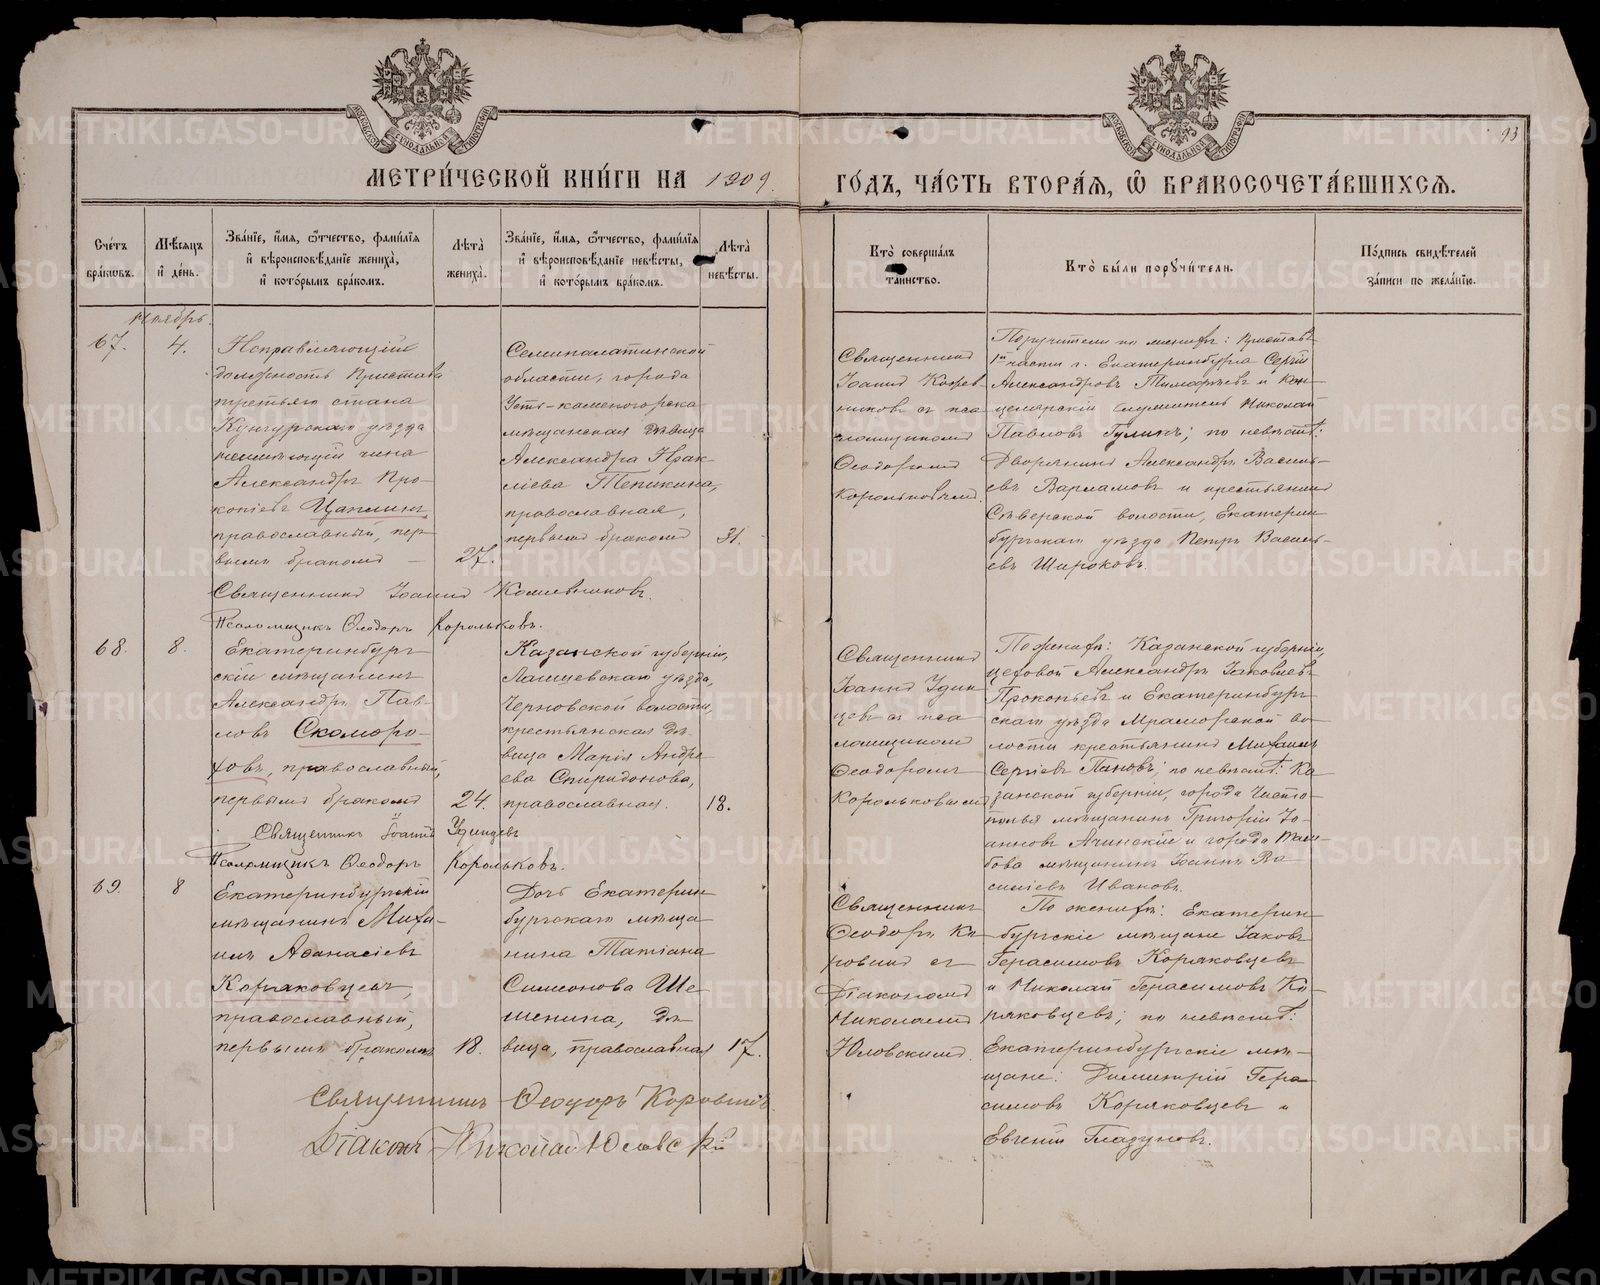 МЕТРИ́ЧЕСКОЙ КНИ́ГИ НА 1909.
ГО́ДЪ, ЧА́СТЬ ВТОРА́Ѧ, Ѿ БРАКОСОЧЕТА́ВШИХСѦ.
93
Сче́тъ бра́ковъ.
Мѣ́сѧцъ и҆ де́нь.
Зва́нїе, и҆́мѧ, ѻ҆́тчество, фами́лїѧ и҆ вѣроисповѣ́данїе жениха̀, и҆ кото́рымъ бра́комъ.
Лѣта̀ жениха̀.
Зва́нїе, и҆́мѧ, ѻ҆́тчество, фами́лїѧ и҆ вѣроисповѣ́данїе невѣ́сты, и҆ кото́рымъ бра́комъ.
Лѣта̀ невѣ́сты.
Кто̀ соверша́лъ та́инство.
Кто̀ бы́ли порꙋчи́тели.
По́дпись свидѣ́телей за́писи по жела́нїю.
Ноябрь.
67.
4.
Исправляющій
должность Пристава
третьяго стана
Кунгурскаго уѣзда
неимѣющій чина
Александръ Про-
копіевъ Цаплинъ
православный, пер-
вымъ бракомъ —
27.
Семипалатинской
области, города
Усть-каменогорска
мѣщанская дѣвица
Александра Ирак-
ліева Тепикина,
православная,
первымъ бракомъ
31.
Священникъ
Іоаннъ Кожев-
никовъ съ пса
ломщикомъ
Ѳеодоромъ
Корольковымъ.
Поручители по женихѣ: Приставъ
1й части г. Екатеринбурга Сергій
Александровъ Тимофѣевъ и Кан-
целярскій служитель Николай
Павловъ Гулинъ; по невѣстѣ:
Дворянинъ Александръ Василь-
евъ Варламовъ и крестьянинъ
Сѣверской волости, Екатерин
бургскаго уѣзда Петръ Василь-
евъ Широковъ.
Священникъ Іоаннъ Кожевниковъ.
Псаломщикъ Ѳеодоръ Корольковъ.
68.
8.
Екатеринбург
скій мѣщанинъ
Александръ Пав-
ловъ Скоморо-
ховъ, православный,
первымъ бракомъ
24.
Казанской губерніи,
Лаишевскаго уѣзда,
Черновской волости,
крестьянская дѣ-
вица Марія Андре
ева Спиридонова,
православная.
18.
Священникъ
Іоаннъ Удин
цевъ съ пса
ломщикомъ
Ѳеодоромъ
Корольковымъ
По женихѣ: Казанской губерніи,
цеховой Александръ Іаковлевъ
Прокопьевъ и Екатеринбург
скаго уѣзда Мраморской во-
лости крестьянинъ Михаилъ
Сергіевъ Пановъ; по невѣстѣ: Ка
занской губерніи, города Чисто-
полья мѣщанинъ Григорій Іо-
анновъ Ачинскій и города Там-
бова мѣщанинъ Іоаннъ Ва
силіевъ Ивановъ.
Священникъ Іоаннъ Удинцевъ
Псаломщикъ Ѳеодоръ Корольковъ.
69.
8
Екатеринбургскій
мѣщанинъ Миха-
илъ Аѳанасіевъ
Коряковцевъ,
православный,
первымъ бракомъ
18.
Дочь Екатерин
бургскаго мѣща
нина Татіана
Симеонова Ше
шенина, дѣ
вица, православная
17.
Священникъ
Ѳеодоръ Ко
ровинъ съ
Діакономъ
Николаемъ
Юловскимъ.
По женихѣ: Екатерин-
бургскіе мѣщане Іаковъ
Герасимовъ Коряковцевъ
и Николай Герасимовъ Ко-
ряковцевъ; по невѣстѣ:
Екатеринбургскіе мѣ-
щане: Димитрій Гера-
симовъ Коряковцевъ и
Евгеній Глазуновъ.
Священникъ Ѳеодоръ Коровинъ
Діаконъ Николай Юловскій